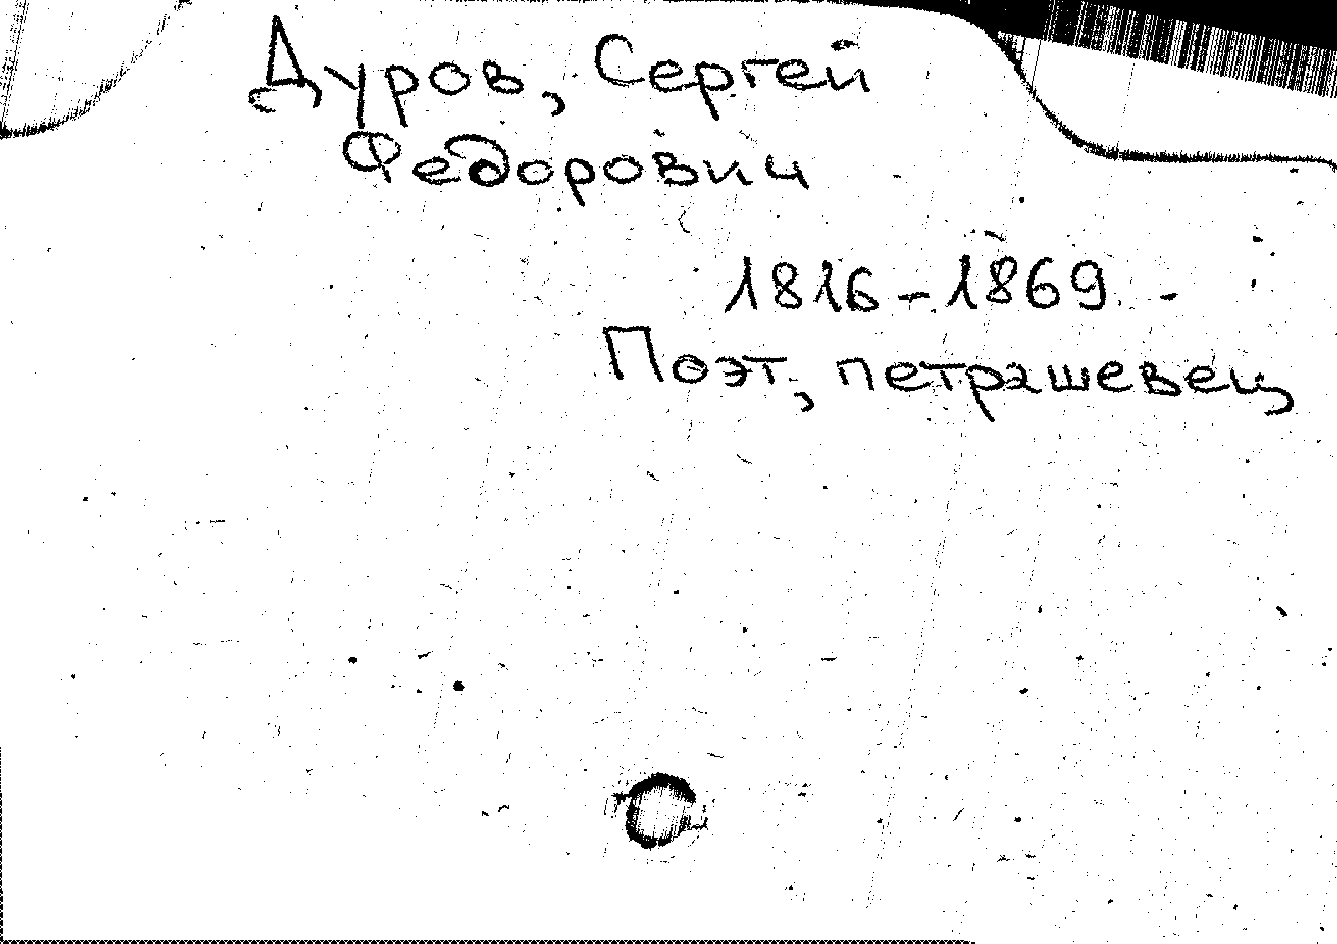 Дуров, Сергей
Федорович
1816-1869
Поэт, петрашевец